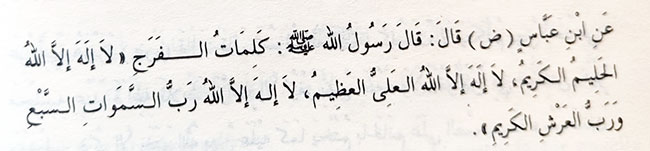 عَنِ ابْنِ عَبَّاسٍ (ض) قَالَ: قَالَ رَسُولُ اللهِ ﷺ: كَلِمَاتُ الْفَرَجِ «لاَ إِلَهَ إِلاَّ اللهُ
الحَلِيمُ الكَرِيمُ، لاَ إِلَهَ إِلاَّ اللهُ العَلِيُّ العَظِيمُ، لاَ إِلهَ إِلاَّ اللهُ رَبُّ السَّمَوَاتِ السَّبْعِ
وَرَبُّ العَرْشِ الكَرِيمِ».